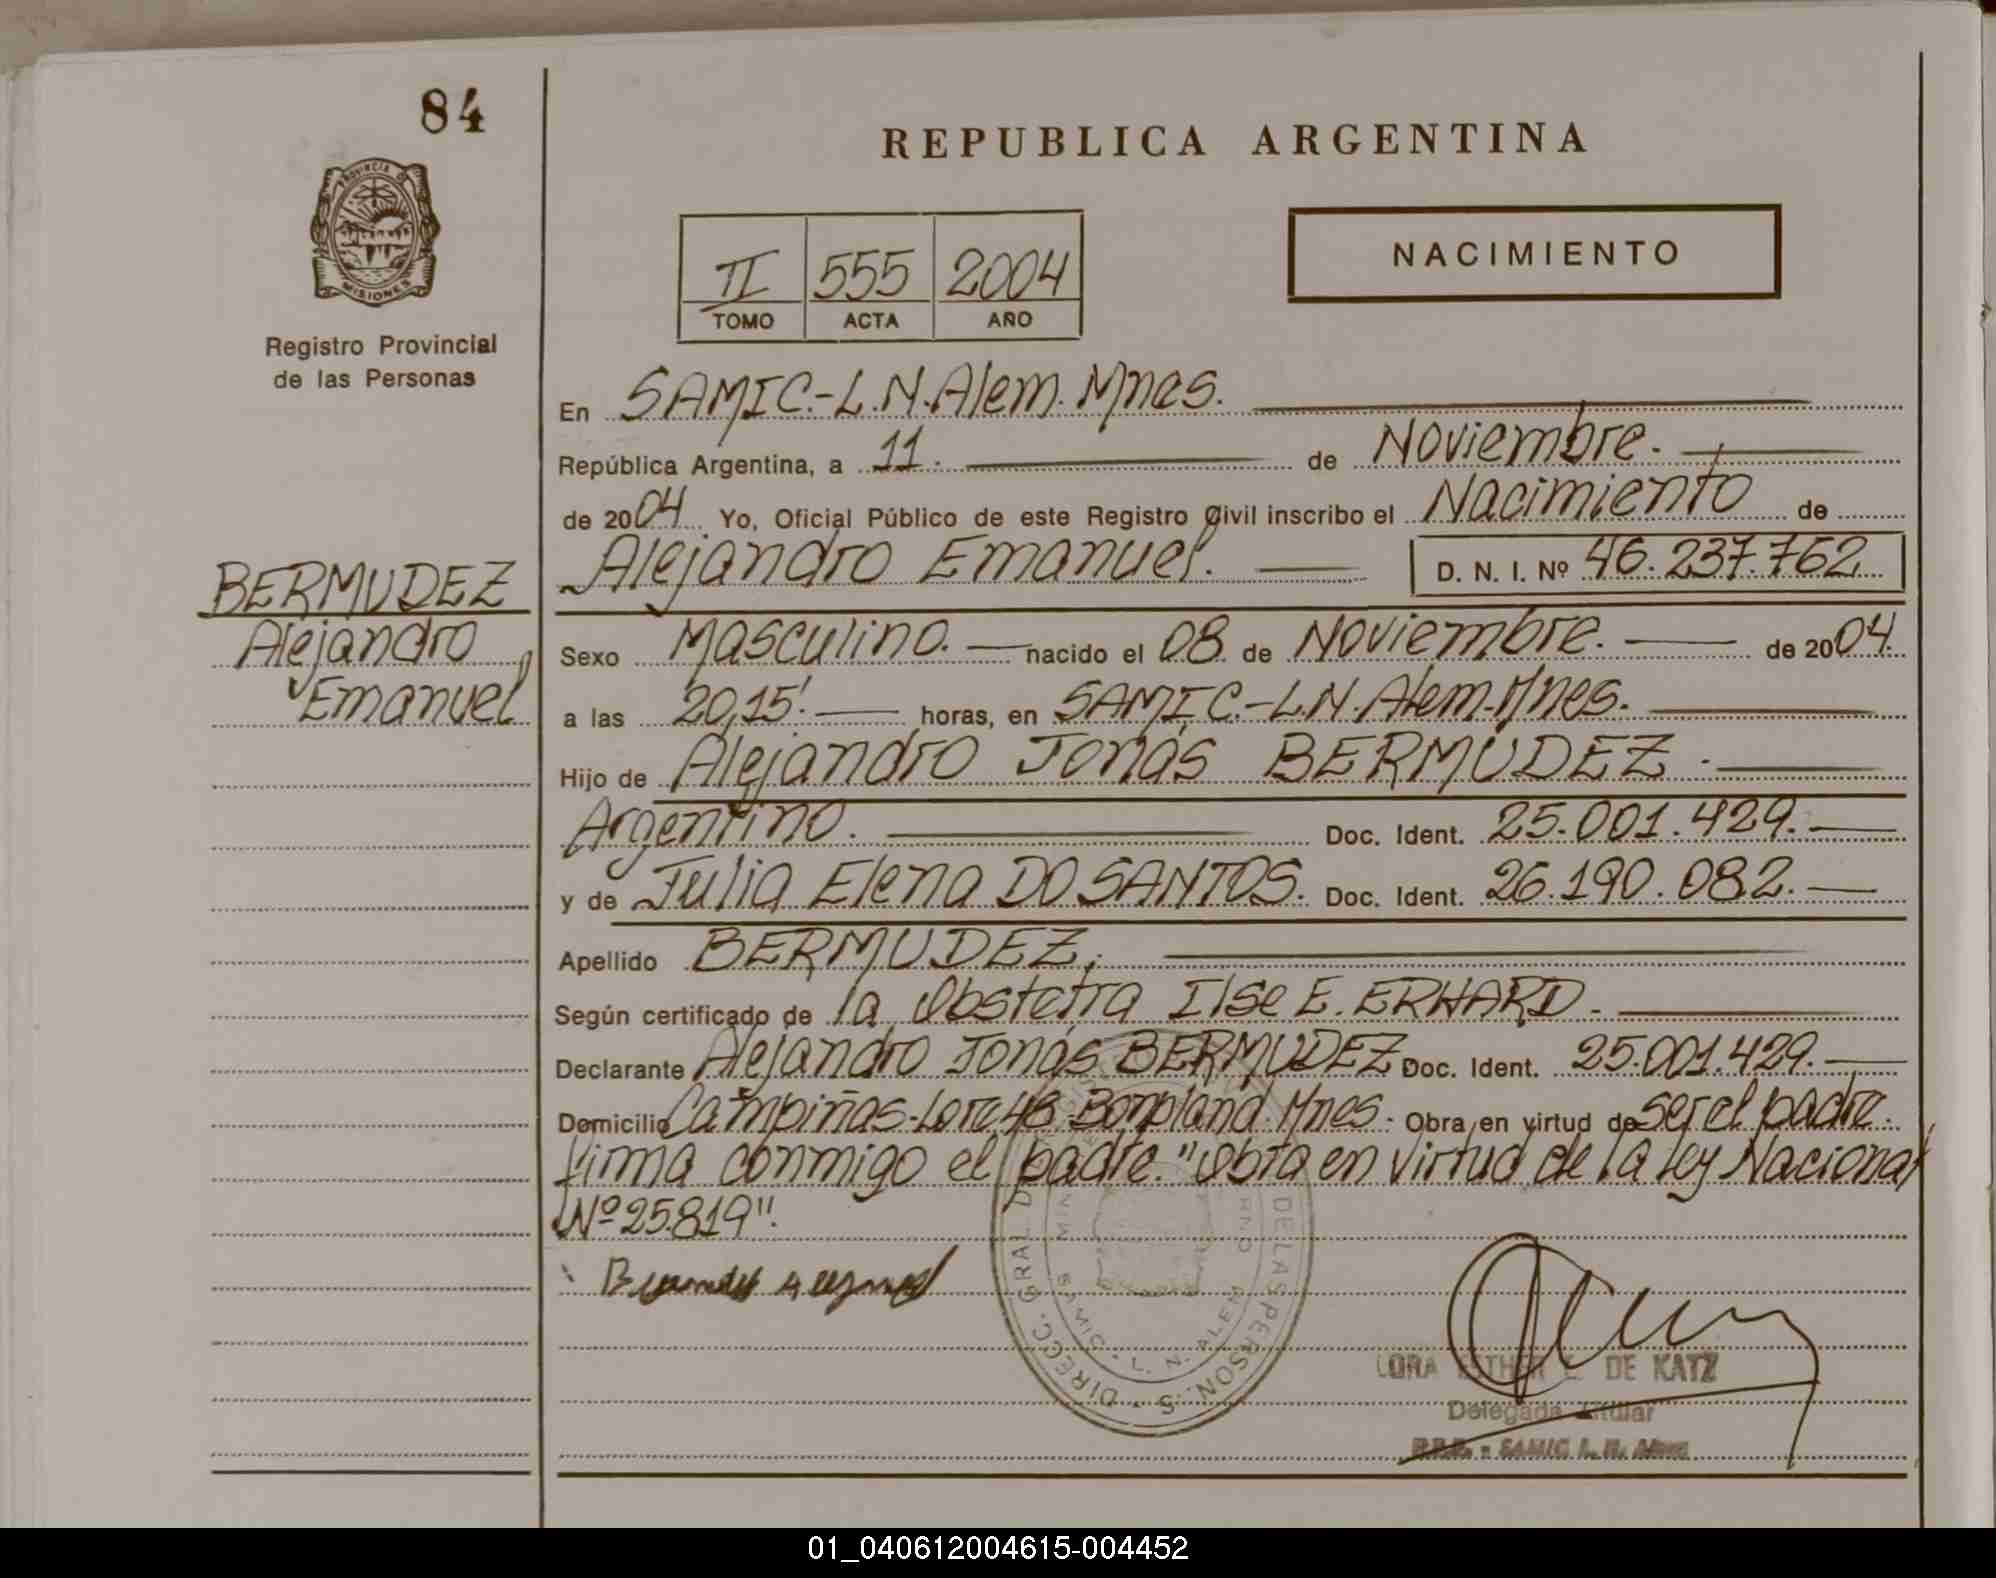 84
PROVINCIA DE
MISIONES
Registro Provincial
de las Personas
BERMUDEZ
Alejandro
Emanuel
REPUBLICA ARGENTINA
II 555 2004
TOMO ACTA AÑO
NACIMIENTO
En SAMIC.-L.N.Alem.Mnes.
República Argentina, a 11. de Noviembre.
de 2004 Yo, Oficial Público de este Registro Civil inscribo el Nacimiento de
Alejandro Emanuel. D. N. I. Nº 46.237.762
Sexo Masculino. nacido el 08 de Noviembre. de 2004.
a las 20,15' horas, en SAMIC.-L.N.Alem.Mnes.
Hijo de Alejandro Jonás BERMUDEZ.
Argentino. Doc. Ident. 25.001.429.
y de Julia Elena DO SANTOS. Doc. Ident. 26.190.082.
Apellido BERMUDEZ.
Según certificado de la Obstetra Ilse E. ERHARD.
Declarante Alejandro Jonás BERMUDEZ Doc. Ident. 25.001.429.
Domicilio Campiñas-Lote 48-Bonpland.Mnes. Obra en virtud de ser el padre.
Firma conmigo el padre. "Obra en virtud de la Ley Nacional
Nº 25.819".
DIRECC. GRAL. DE LAS PERSONAS
SAMIC - L. N. ALEM
DE KATZ
Delegada Titular
SAMIC L. N. Alem
01_040612004615-004452